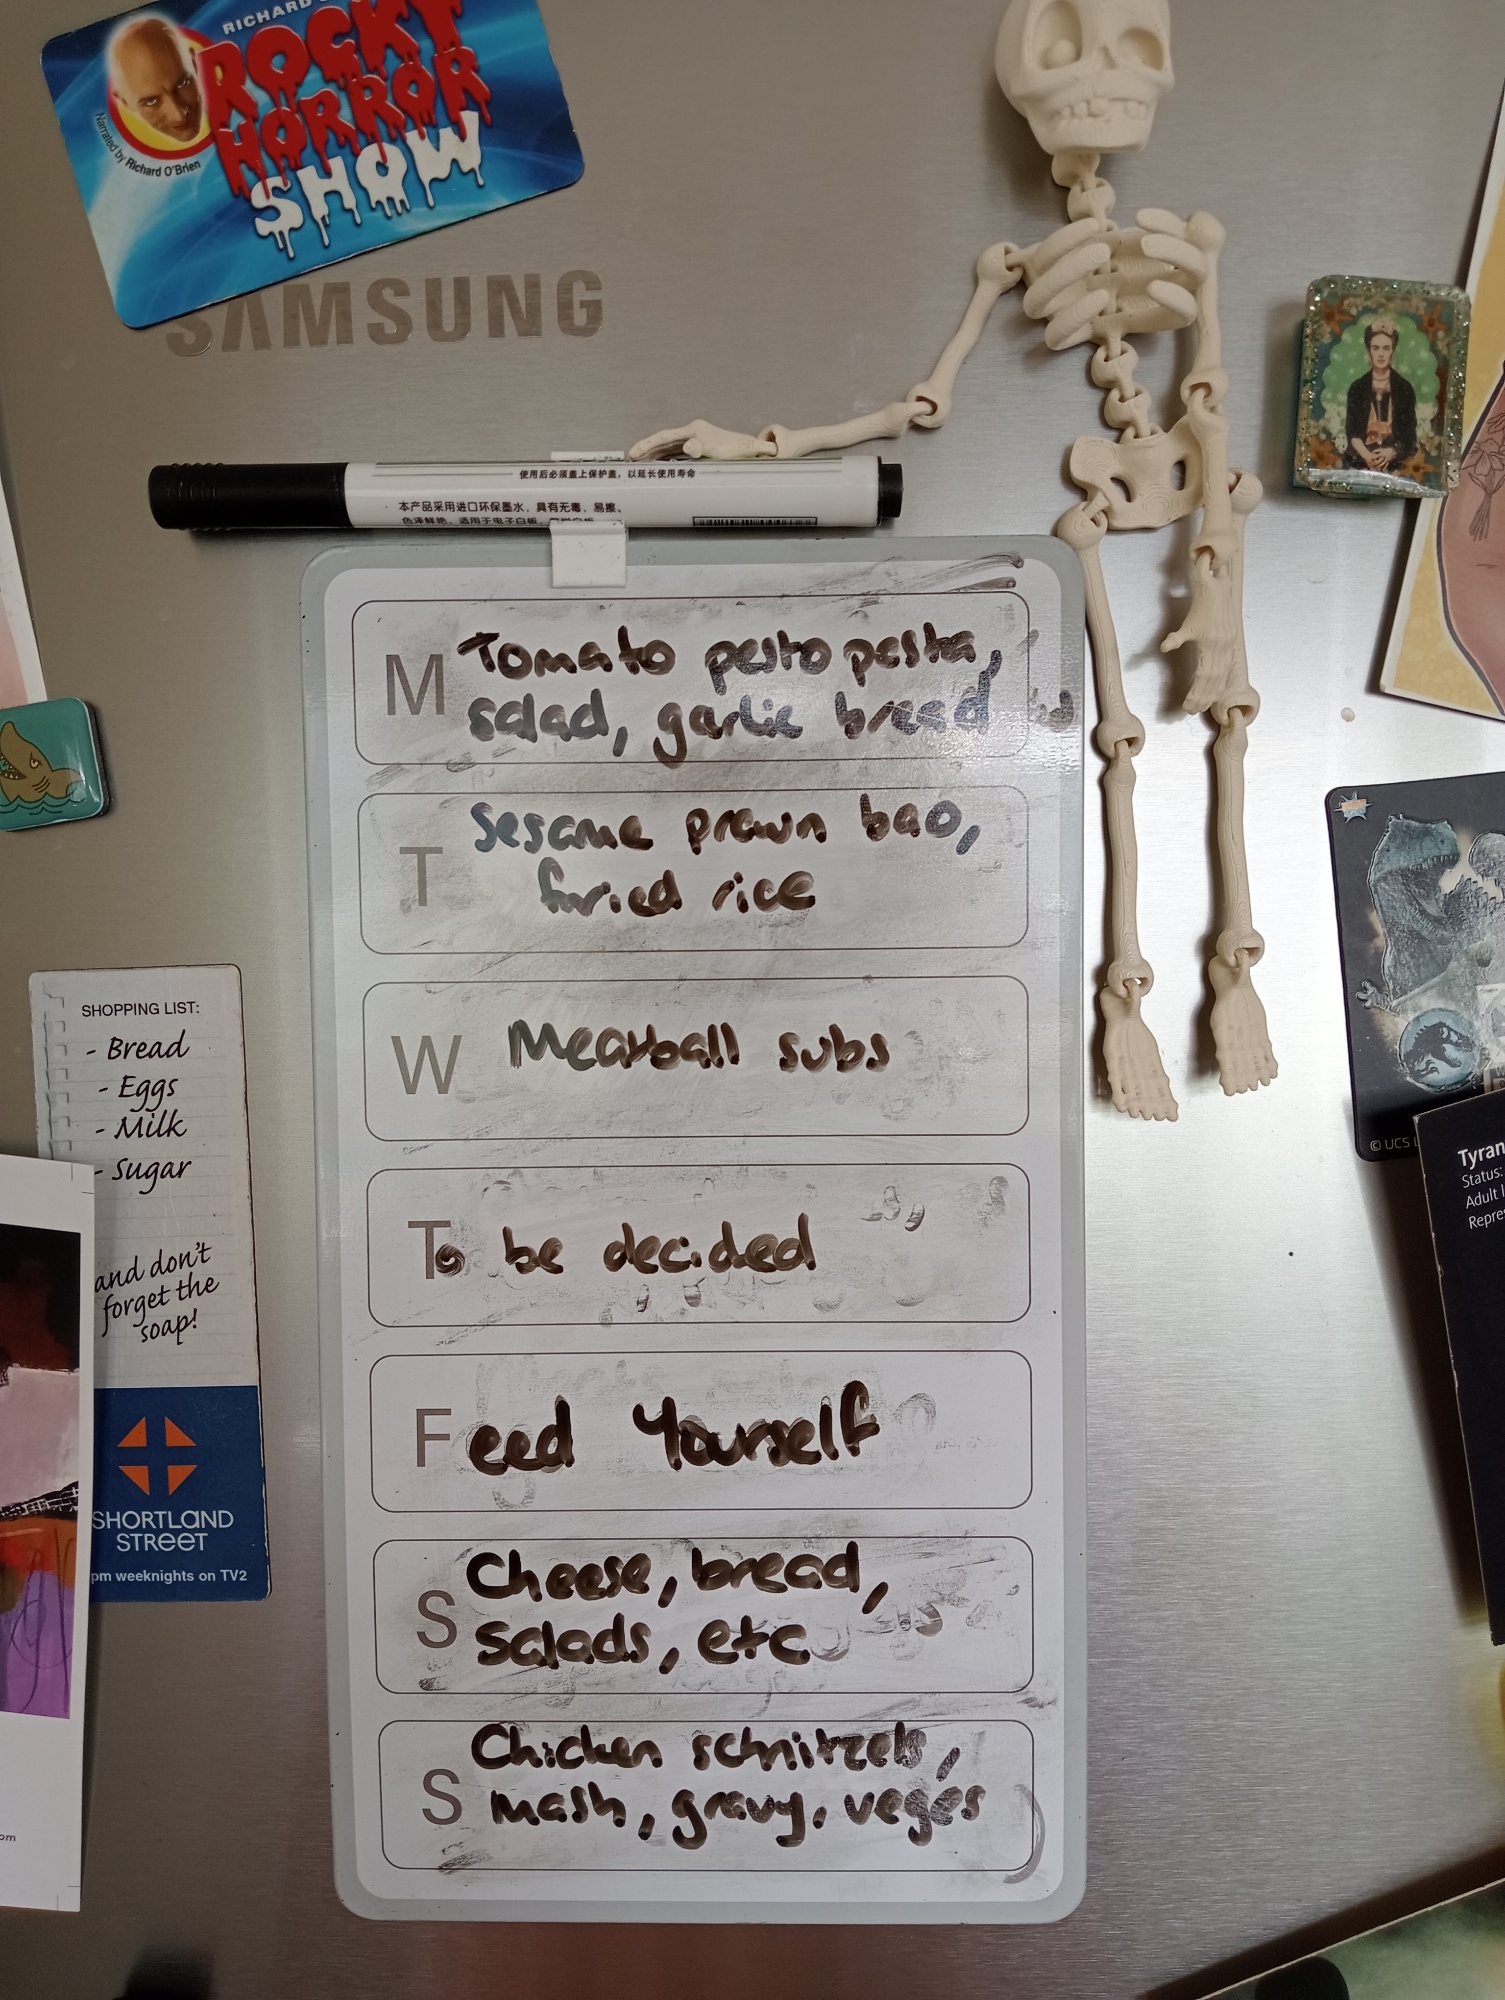 RICHARD
ROCKY
HORROR
SHOW
Narrated by Richard O'Brien
SAMSUNG
使用后必须盖上保护盖，以延长使用寿命
本产品采用进口环保墨水，具有无毒、易擦、
色泽鲜艳，适用于电子白板、
M Tomato pesto pasta,
salad, garlic bread
T Sesame prawn bao,
furied rice
W Meatball subs
To be decided
Feed Yourself
S Cheese, bread,
salads, etc
S Chicken schnitzels,
mash, gravy, veges
SHOPPING LIST:
- Bread
- Eggs
- Milk
- Sugar
and don't
forget the
soap!
SHORTLAND
STREET
pm weeknights on TV2
om
© UCS
Tyran
Status:
Adult
Repre